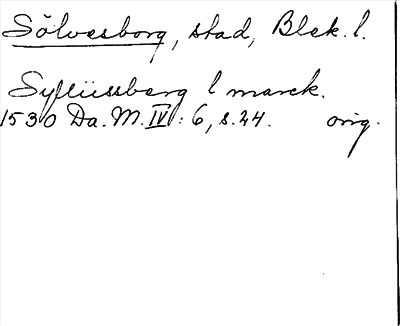 Sölvesborg, stad, Blek. l.
Syluissberg l marck.
1530 Da. M. IV: 6, s. 24. orig.